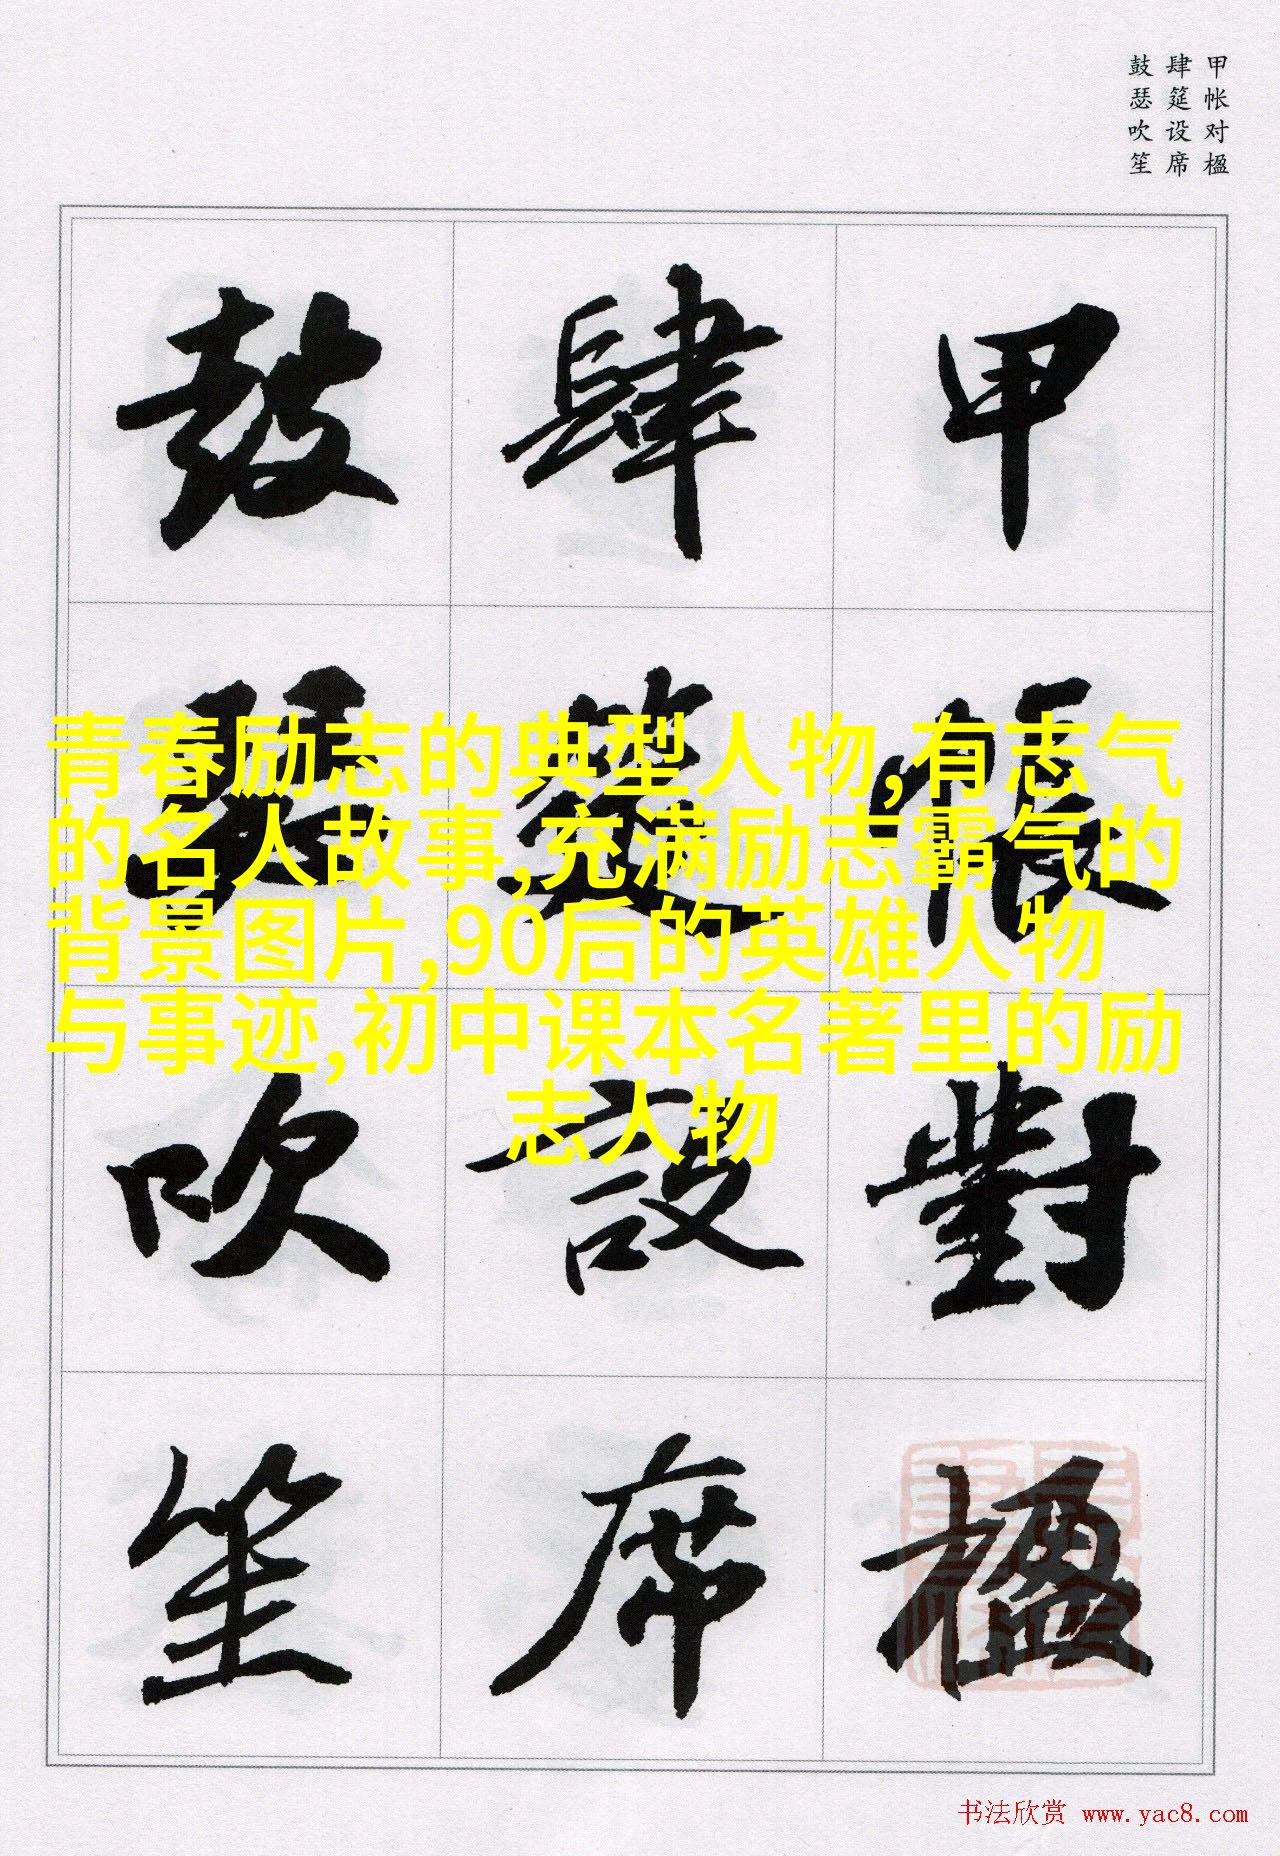 甲帐对楹
肆筵设席
鼓瑟吹笙
甲帳對楹
肆筵設席
鼓瑟吹笙
青春励志的典型人物,有志气
的名人故事,充满励志霸气的
背景图片,90后的英雄人物
与事迹,初中课本名著里的励
志人物
书法欣赏 www.yac8.com